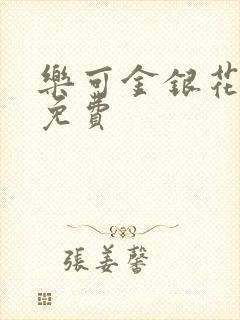 樂可金銀花
免費
張姜馨